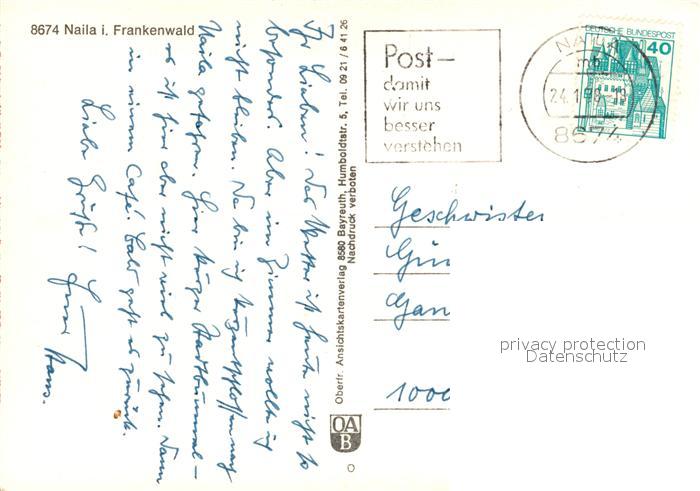 8674 Naila i. Frankenwald
Ihr Lieben! Das Wetter ist heute nicht so
besonders. Aber im Zimmer wollte ich
nicht bleiben. Da bin ich kurzentschlossen nach
Naila gefahren. Hier kurzer Stadtbummel –
es ist hier aber nicht viel zu sehen. Dann
in einem Café. Bald geht es zurück.
Liebe Grüße!
Euer
Hans.
Oberfr. Ansichtskartenverlag 8580 Bayreuth, Humboldtstr. 5, Tel. 09 21 / 6 41 26
Nachdruck verboten
OA
B
Post –
damit
wir uns
besser
verstehen
NAILA
mb
24.1. 19
8674
DEUTSCHE BUNDESPOST
40
Geschwister
Gün
Gan
1000
privacy protection
Datenschutz